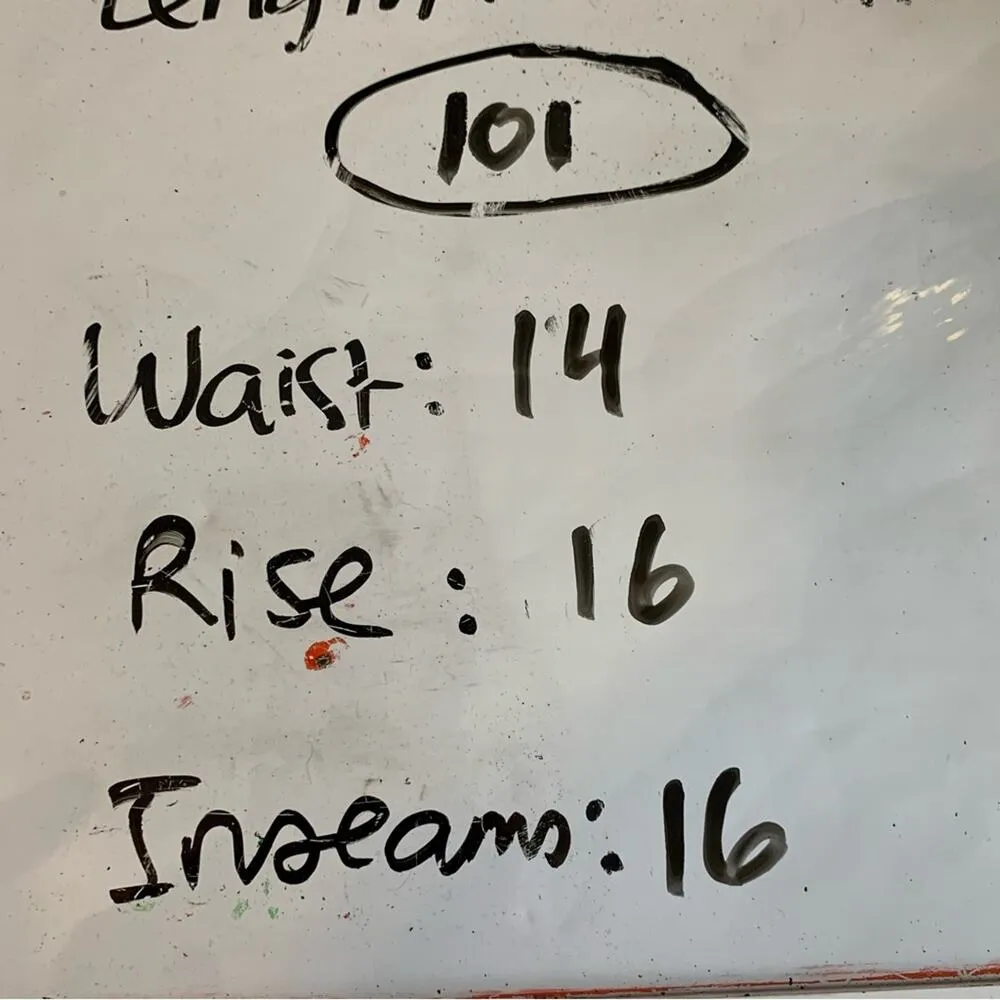 Length
101
Waist: 14
Rise: 16
Inseams: 16